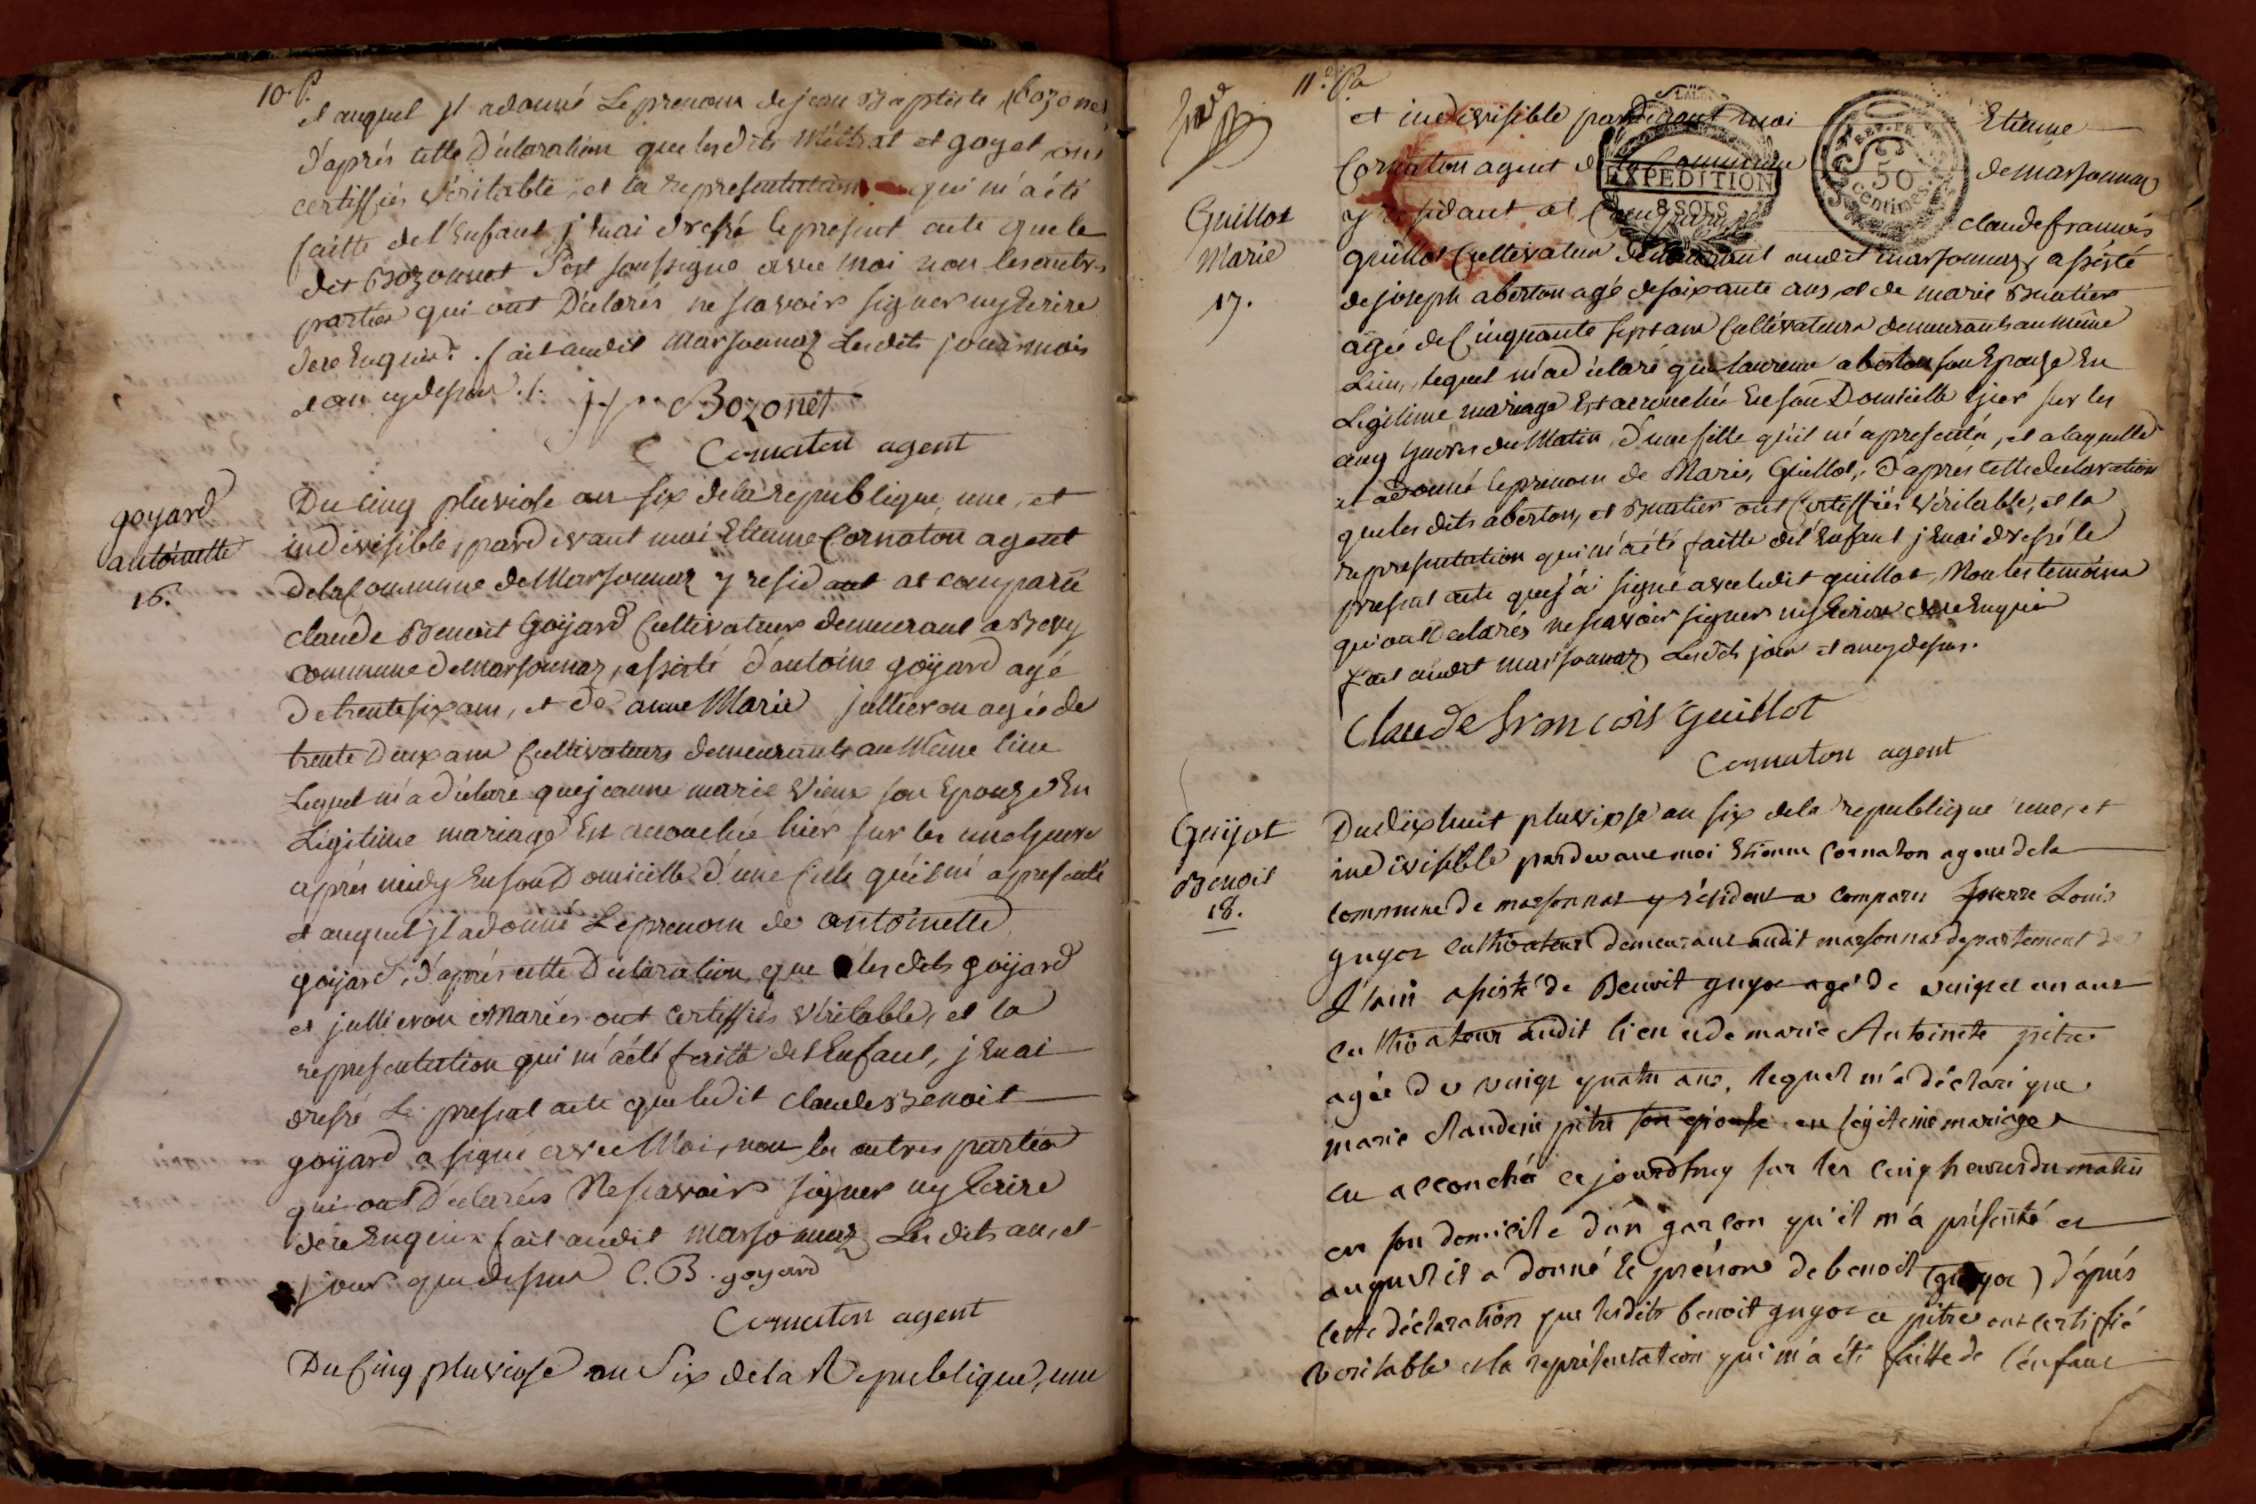 10. P.
et auquel jl a donné Le prenom de jean Baptiste (bozonet)
d'aprés cette Déclaration que lesdits et goyet ont
certiffiés véritable, et la representation qui m'a été
faitte de l'Enfant j'Enai dressé le present acte que le
dit Bozonnet s'est soussigné avec moi non les autres
parties qui ont Déclarés ne scavoir signer ny Ecrire
de ce Enquis. fait audit Marsonnaz Lesdits jour mois
et an cy dessus ./.
Bozonet
Cornaton agent
goyard
antoinette
16.
Du cinq pluviose an six de la republique, une, et
indivisible, pardevant moi Etienne Cornaton agent
de la Commune de Marsonnaz y residant at comparu
claude Benoit Goÿard Cultivateur demeurant a Bevy
commune de Marsonnaz, assisté d'antoine goÿard agé
de trente six ans, et de anne Marie jullieron agée de
trente Deux ans Cultivateurs demeurants au Même lieu
Lequel m'a déclaré que jeanne marie Vieux son Epouze En
Légitime mariage Est accouchée hier sur les une heure
aprés midy En son Domicille d'une fille qu'il m'a presenté
et auquel jl a donné Le prenom de antoinette
goÿard, d'aprés cette Déclaration que lesdits goÿard
et jullieron Mariés ont certiffiés véritable, et la
representation qui m'a été faitte de l'Enfant, j'Enai
dressé Le present acte que ledit claude Benoit
goÿard a signé avec Moi, non les autres parties
qui ont Déclarés Ne scavoir signer ny Ecrire
de ce Enquis fait audit Marsonnaz Lesdits an, et
jour que dessus C. B. goyard
Cornaton agent
Du Cinq pluviose an Six de la Republique, une
11. Pa
et indivisible pardevant moi Etienne
Cornaton agent de la Commune de Marsonnaz
y residant at Comparu claude francois
EXPEDITION
8 SOLS
50
Centimes
Guillot
Marie
17.
guillot Cultivateur demeurant audit marsonnaz assisté
de joseph aberton agé de soixante ans, et de marie Buatier
agée de Cinquante sept ans Cultivateurs demeurants au même
Lieu, lequel m'a déclaré que laurence aberton son Epouze En
Légitime mariage Est accouchée En son Domicille hier sur les
cinq heures du Matin, d'une fille qu'il m'a presenté, et a laquelle
il a donné le prenom de Marie, Guillot, d'aprés cette declaration
que les dits aberton, et Buatier ont Certiffiés véritable, et la
representation qui m'a été faitte de l'Enfant j'Enai dressé le
present acte que j'ai signé avec ledit guillot, Non les temoins
qui ont Déclarés ne scavoir signer ny Ecrire de ce Enquis
fait audit marsonnaz Lesdits jour et an cy dessus.
Claude francois guillot
Cornaton agent
Guijot
Benoit
18.
Du dix huit pluviose an six de la republique une, et
indivisible pardevant moi Etienne Cornaton agent de la
commune de marsonnas y résident a comparu pierre Louis
guyot cultivateur demeurant audit marsonnas departement de
l'ain assisté de Benoit guyot agé de vingt un ans
cultivateur audit lieu et de marie Antoinete pitre
agée de vingt quatre ans, lequel m'a déclaré que
marie claudine pitre son epouse en légitime mariage
est accouché ce jourdhuy sur les cinq heures du matin
en son domicile d'un garcon qu'il m'a présenté et
auquel il a donné le prénom de benoit (guyot) d'aprés
cette déclaration que lesdits benoit guyot et pitre ont certiffié
veritable et la représentation qui m'a été faitte de l'enfant